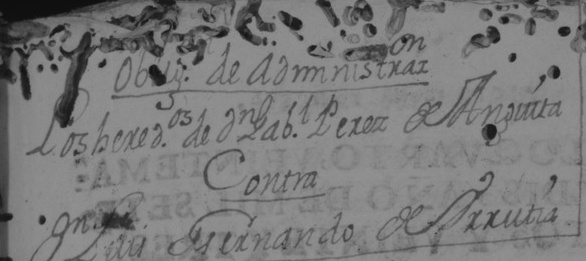 Oblig.on de Administrar
Los hered.os de dn Gab.l Perez de Anguita
Contra
dn Luis Fernando de Urrutia